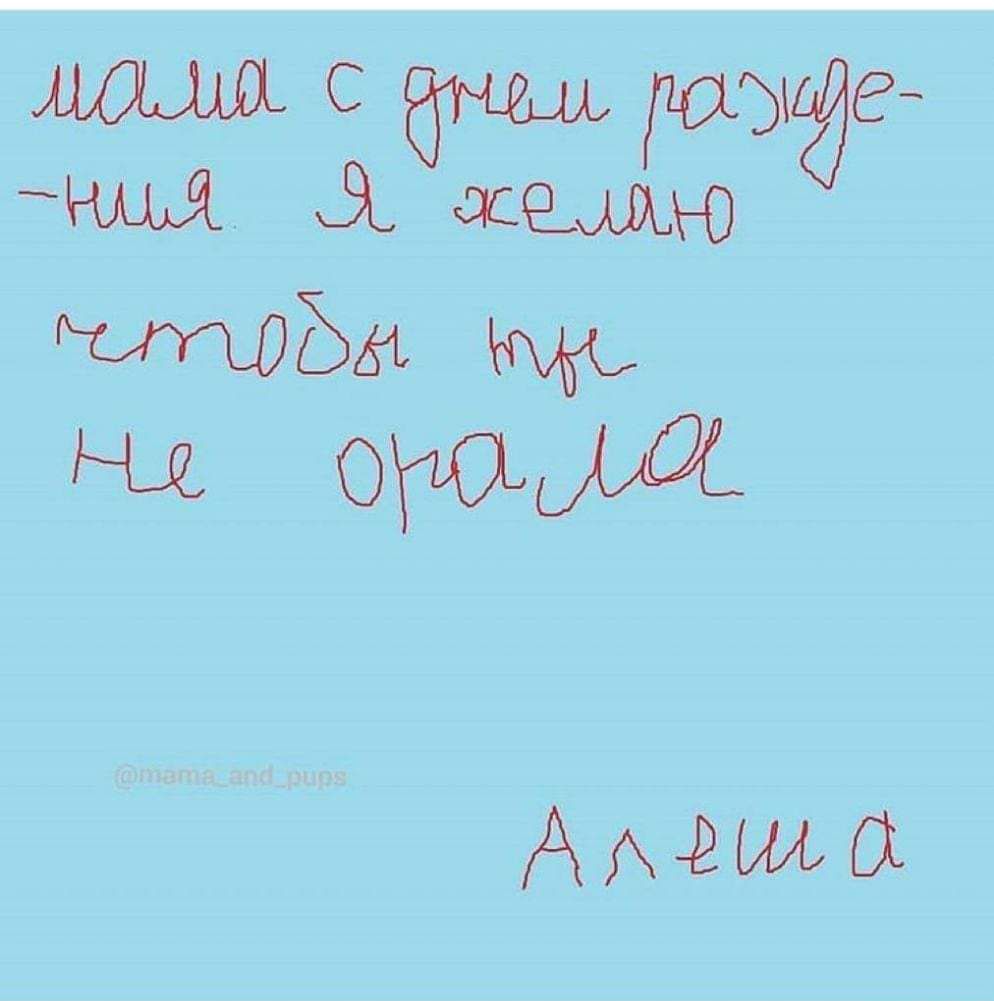 мама с днем ражде-
-ния. Я желаю
чтобы ты
не орала
@mama_and_pups
Алеша